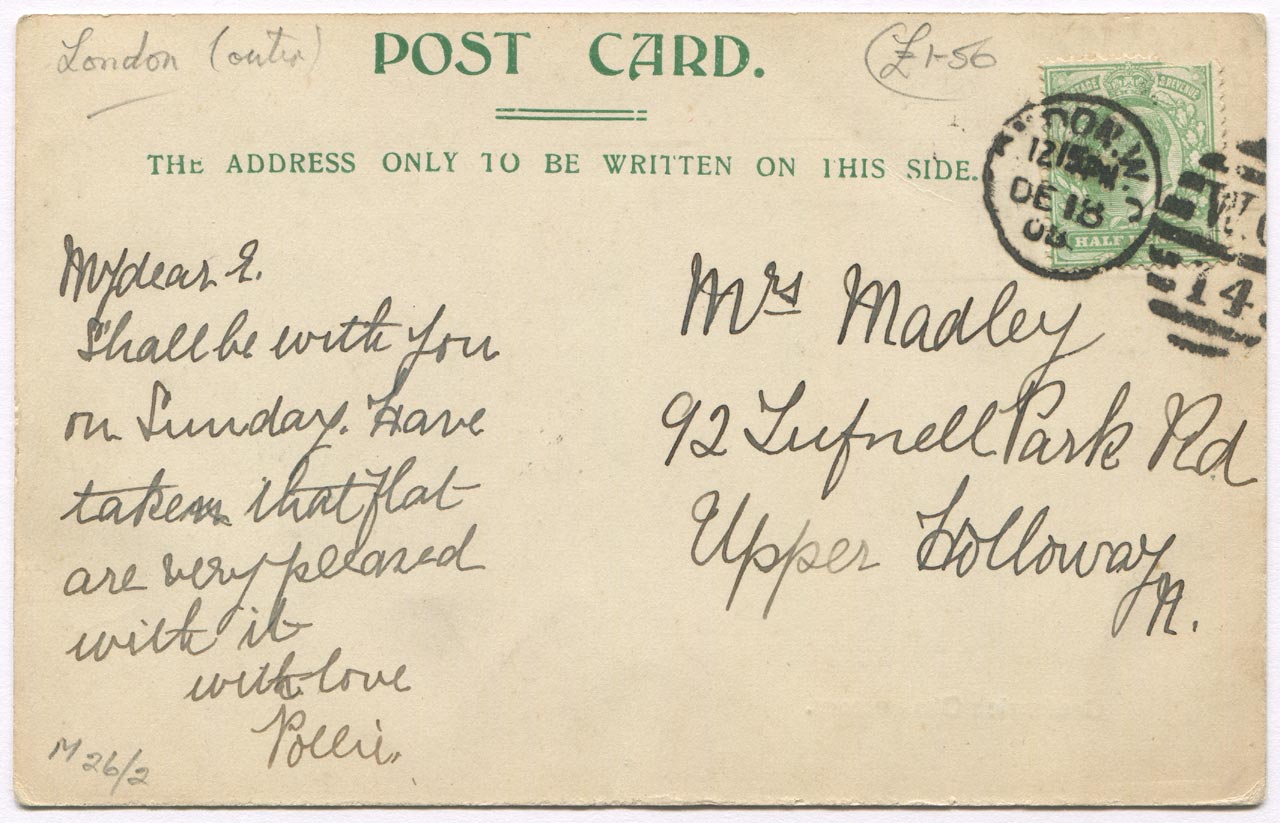 London (outer)
POST CARD.
(£1-50
THE ADDRESS ONLY TO BE WRITTEN ON THIS SIDE.
LONDON. W.C
12 15 PM
DE 18
08
HALF PENNY
W.C
14
My dear E.
Shall be with you
on Sunday. Have
taken that flat
are very pleased
with it
with love
Pollie.
Mrs Madley
92 Tufnell Park Rd
Upper Holloway
N.
M 26/2